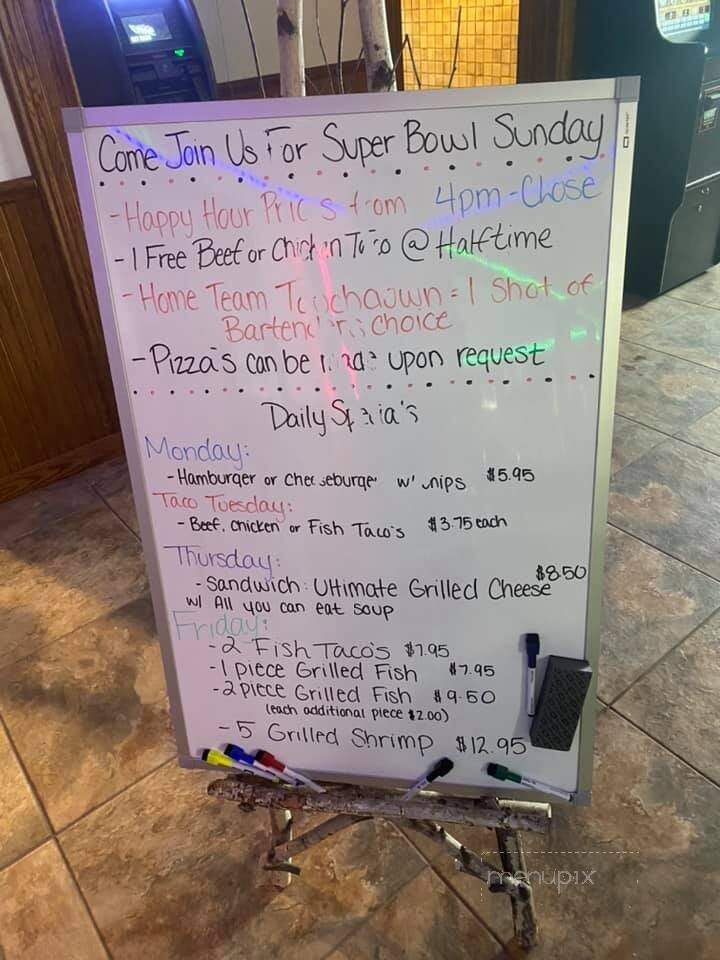 Come Join Us For Super Bowl Sunday
- Happy Hour Prices from 4pm-Close
- 1 Free Beef or Chicken Taco @ Halftime
- Home Team Touchdown = 1 Shot of
Bartender's choice
- Pizza's can be made upon request
Daily Special's
Monday:
- Hamburger or Cheeseburger w/ chips $5.95
Taco Tuesday:
- Beef, Chicken or Fish Taco's $3.75 each
Thursday:
$8.50
- Sandwich: Ultimate Grilled Cheese
w/ All you can eat soup
Friday:
- 2 Fish Taco's $7.95
- 1 piece Grilled Fish $7.95
- 2 piece Grilled Fish $9.50
(each additional piece $2.00)
- 5 Grilled Shrimp $12.95
menupix